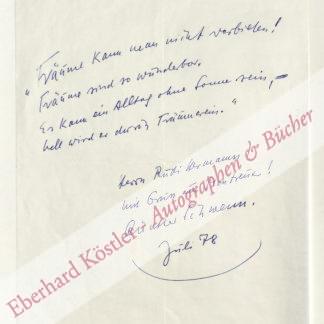 "Träume kann man nicht verbieten!
Träume sind so wunderbar.
Es kann ein Alltag ohne Sonne sein, –
hell wird er durch Träumerein."
Herrn Rudi
mit Gruß
Juli 78
Eberhard Köstler · Autographen & Bücher